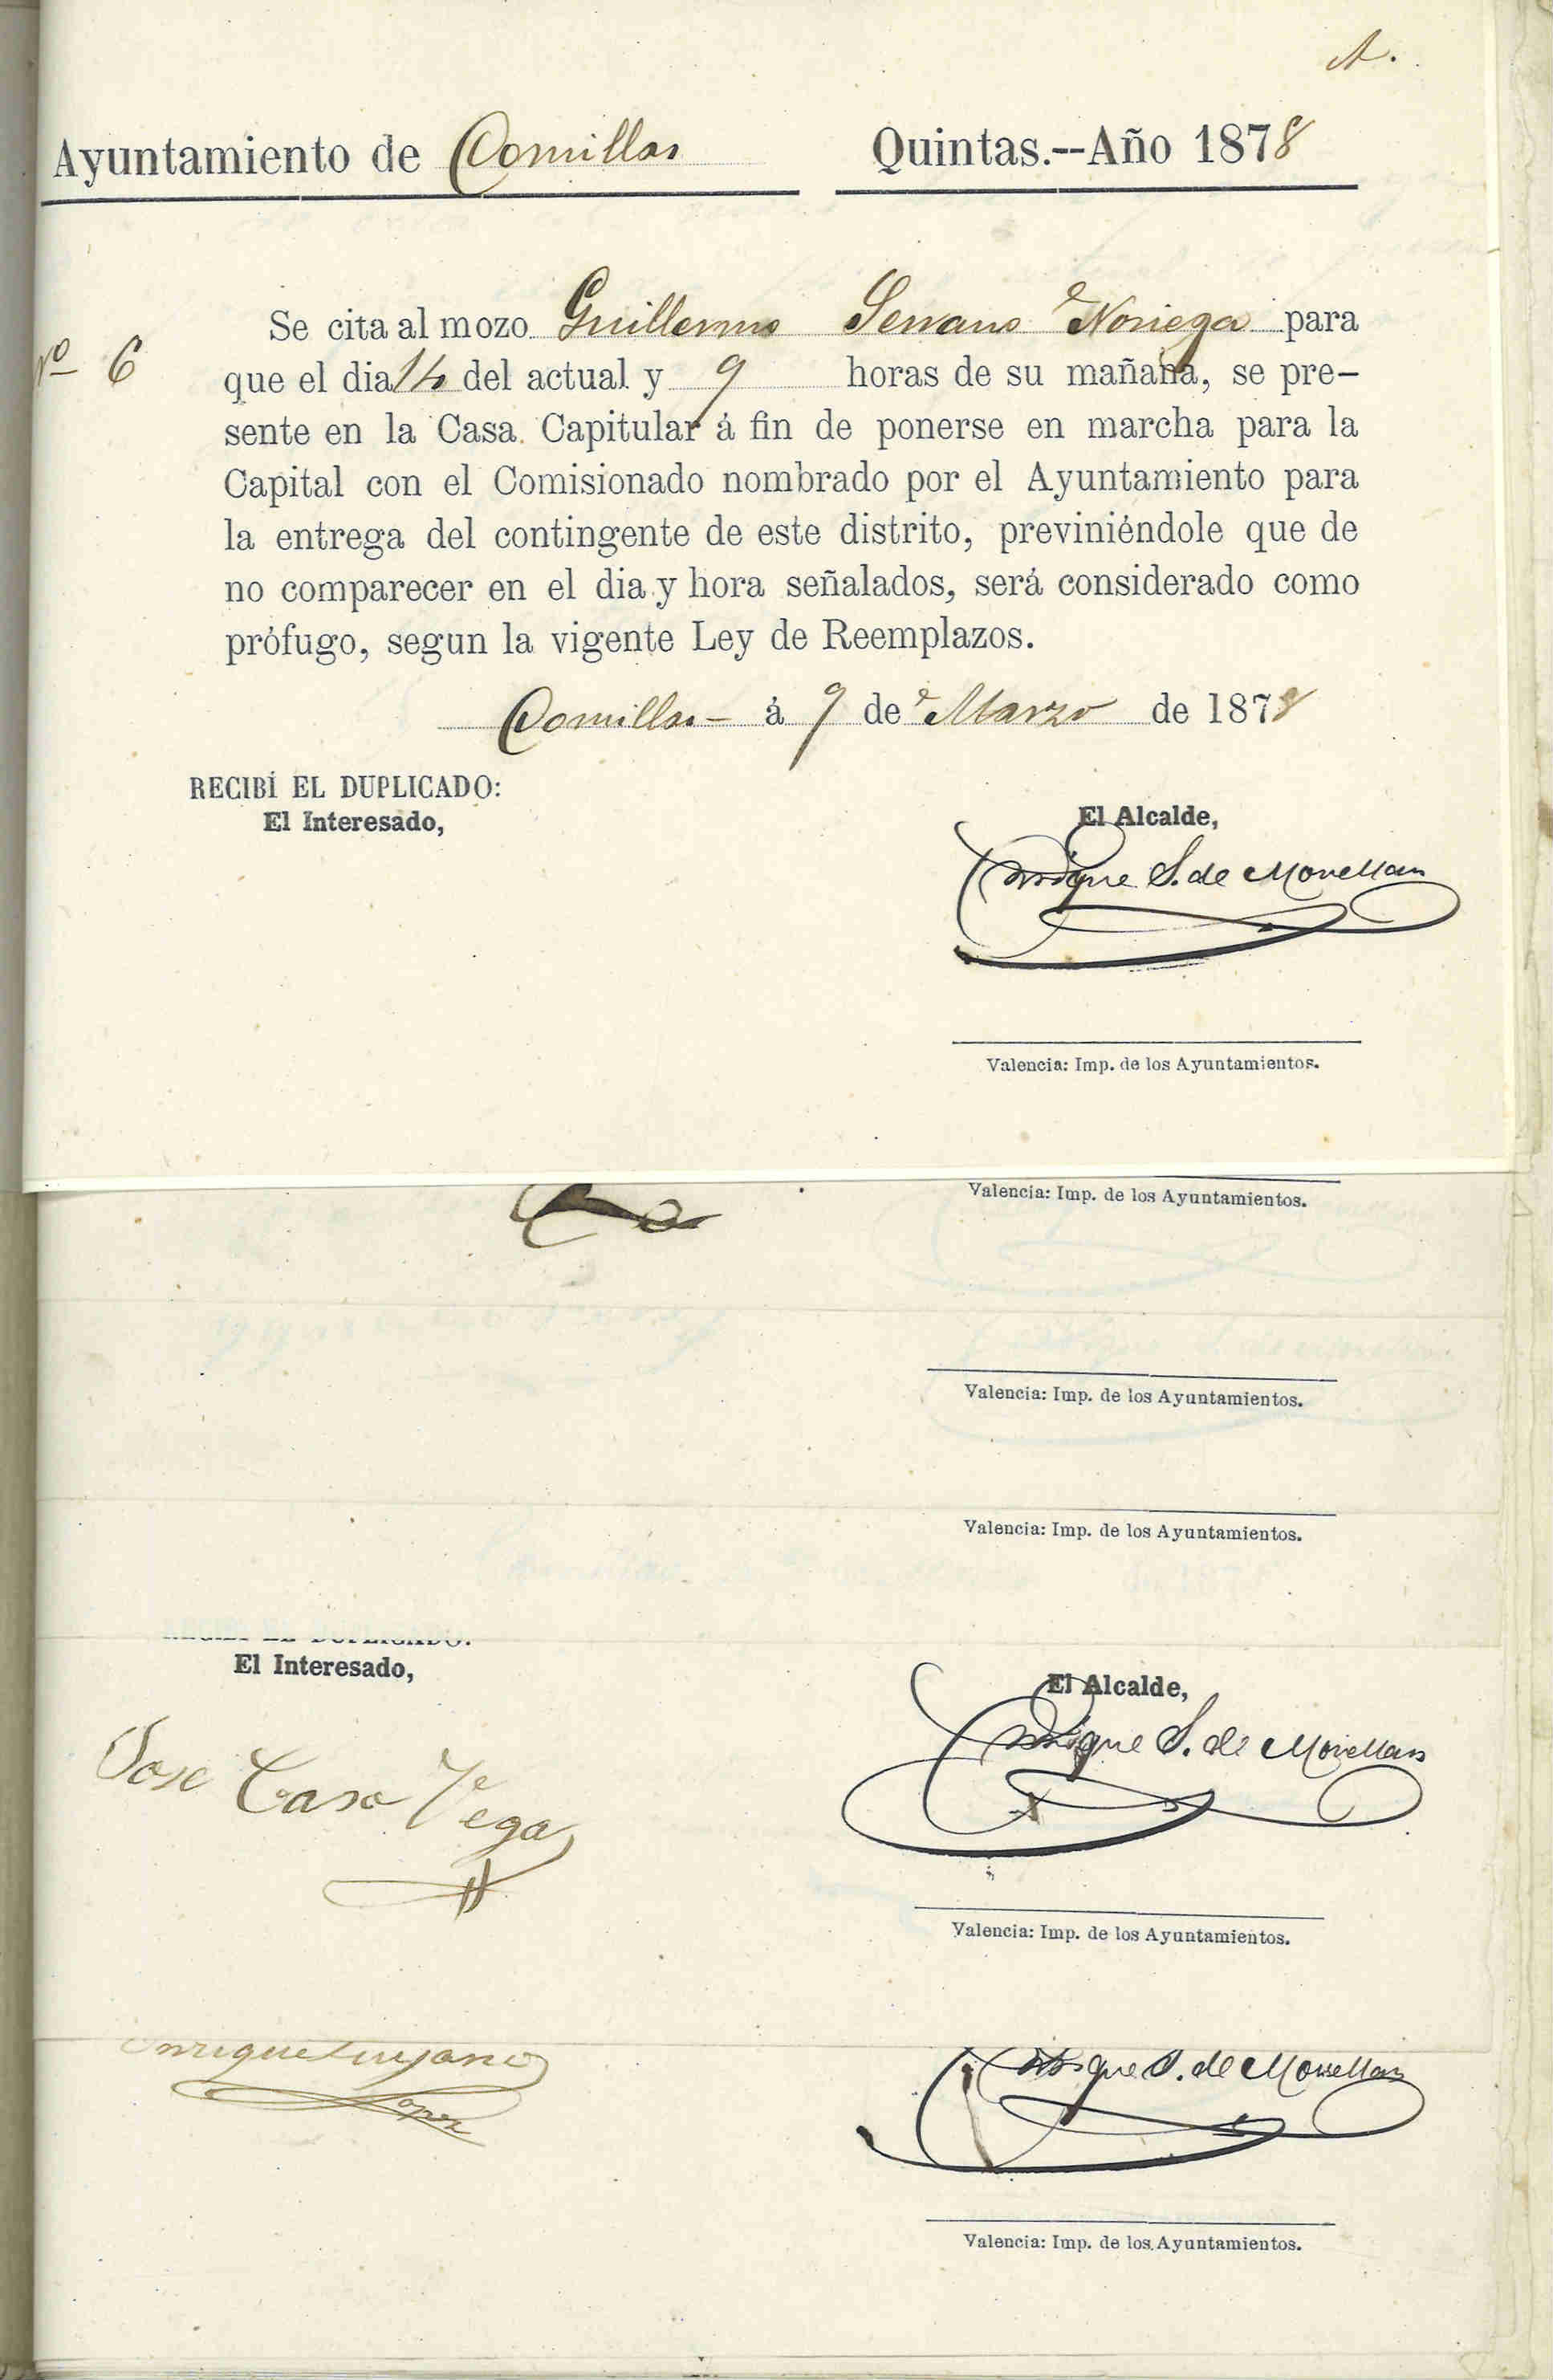 A.
Ayuntamiento de Comillas Quintas.--Año 1878
Se cita al mozo Guillermo Serrano Noriega para
Nº 6 que el dia 14 del actual y 9 horas de su mañana, se pre-
sente en la Casa Capitular á fin de ponerse en marcha para la
Capital con el Comisionado nombrado por el Ayuntamiento para
la entrega del contingente de este distrito, previniéndole que de
no comparecer en el dia y hora señalados, será considerado como
prófugo, segun la vigente Ley de Reemplazos.
Comillas - á 9 de Marzo de 1878
RECIBÍ EL DUPLICADO:
El Interesado, El Alcalde,
Enrique S. de Movellan
Valencia: Imp. de los Ayuntamientos.
Valencia: Imp. de los Ayuntamientos.
Valencia: Imp. de los Ayuntamientos.
Valencia: Imp. de los Ayuntamientos.
RECIBÍ EL DUPLICADO:
El Interesado, El Alcalde,
Jose Caso Vega Enrique S. de Movellan
Valencia: Imp. de los Ayuntamientos.
Enrique Enrique S. de Movellan
Lopez
Valencia: Imp. de los Ayuntamientos.